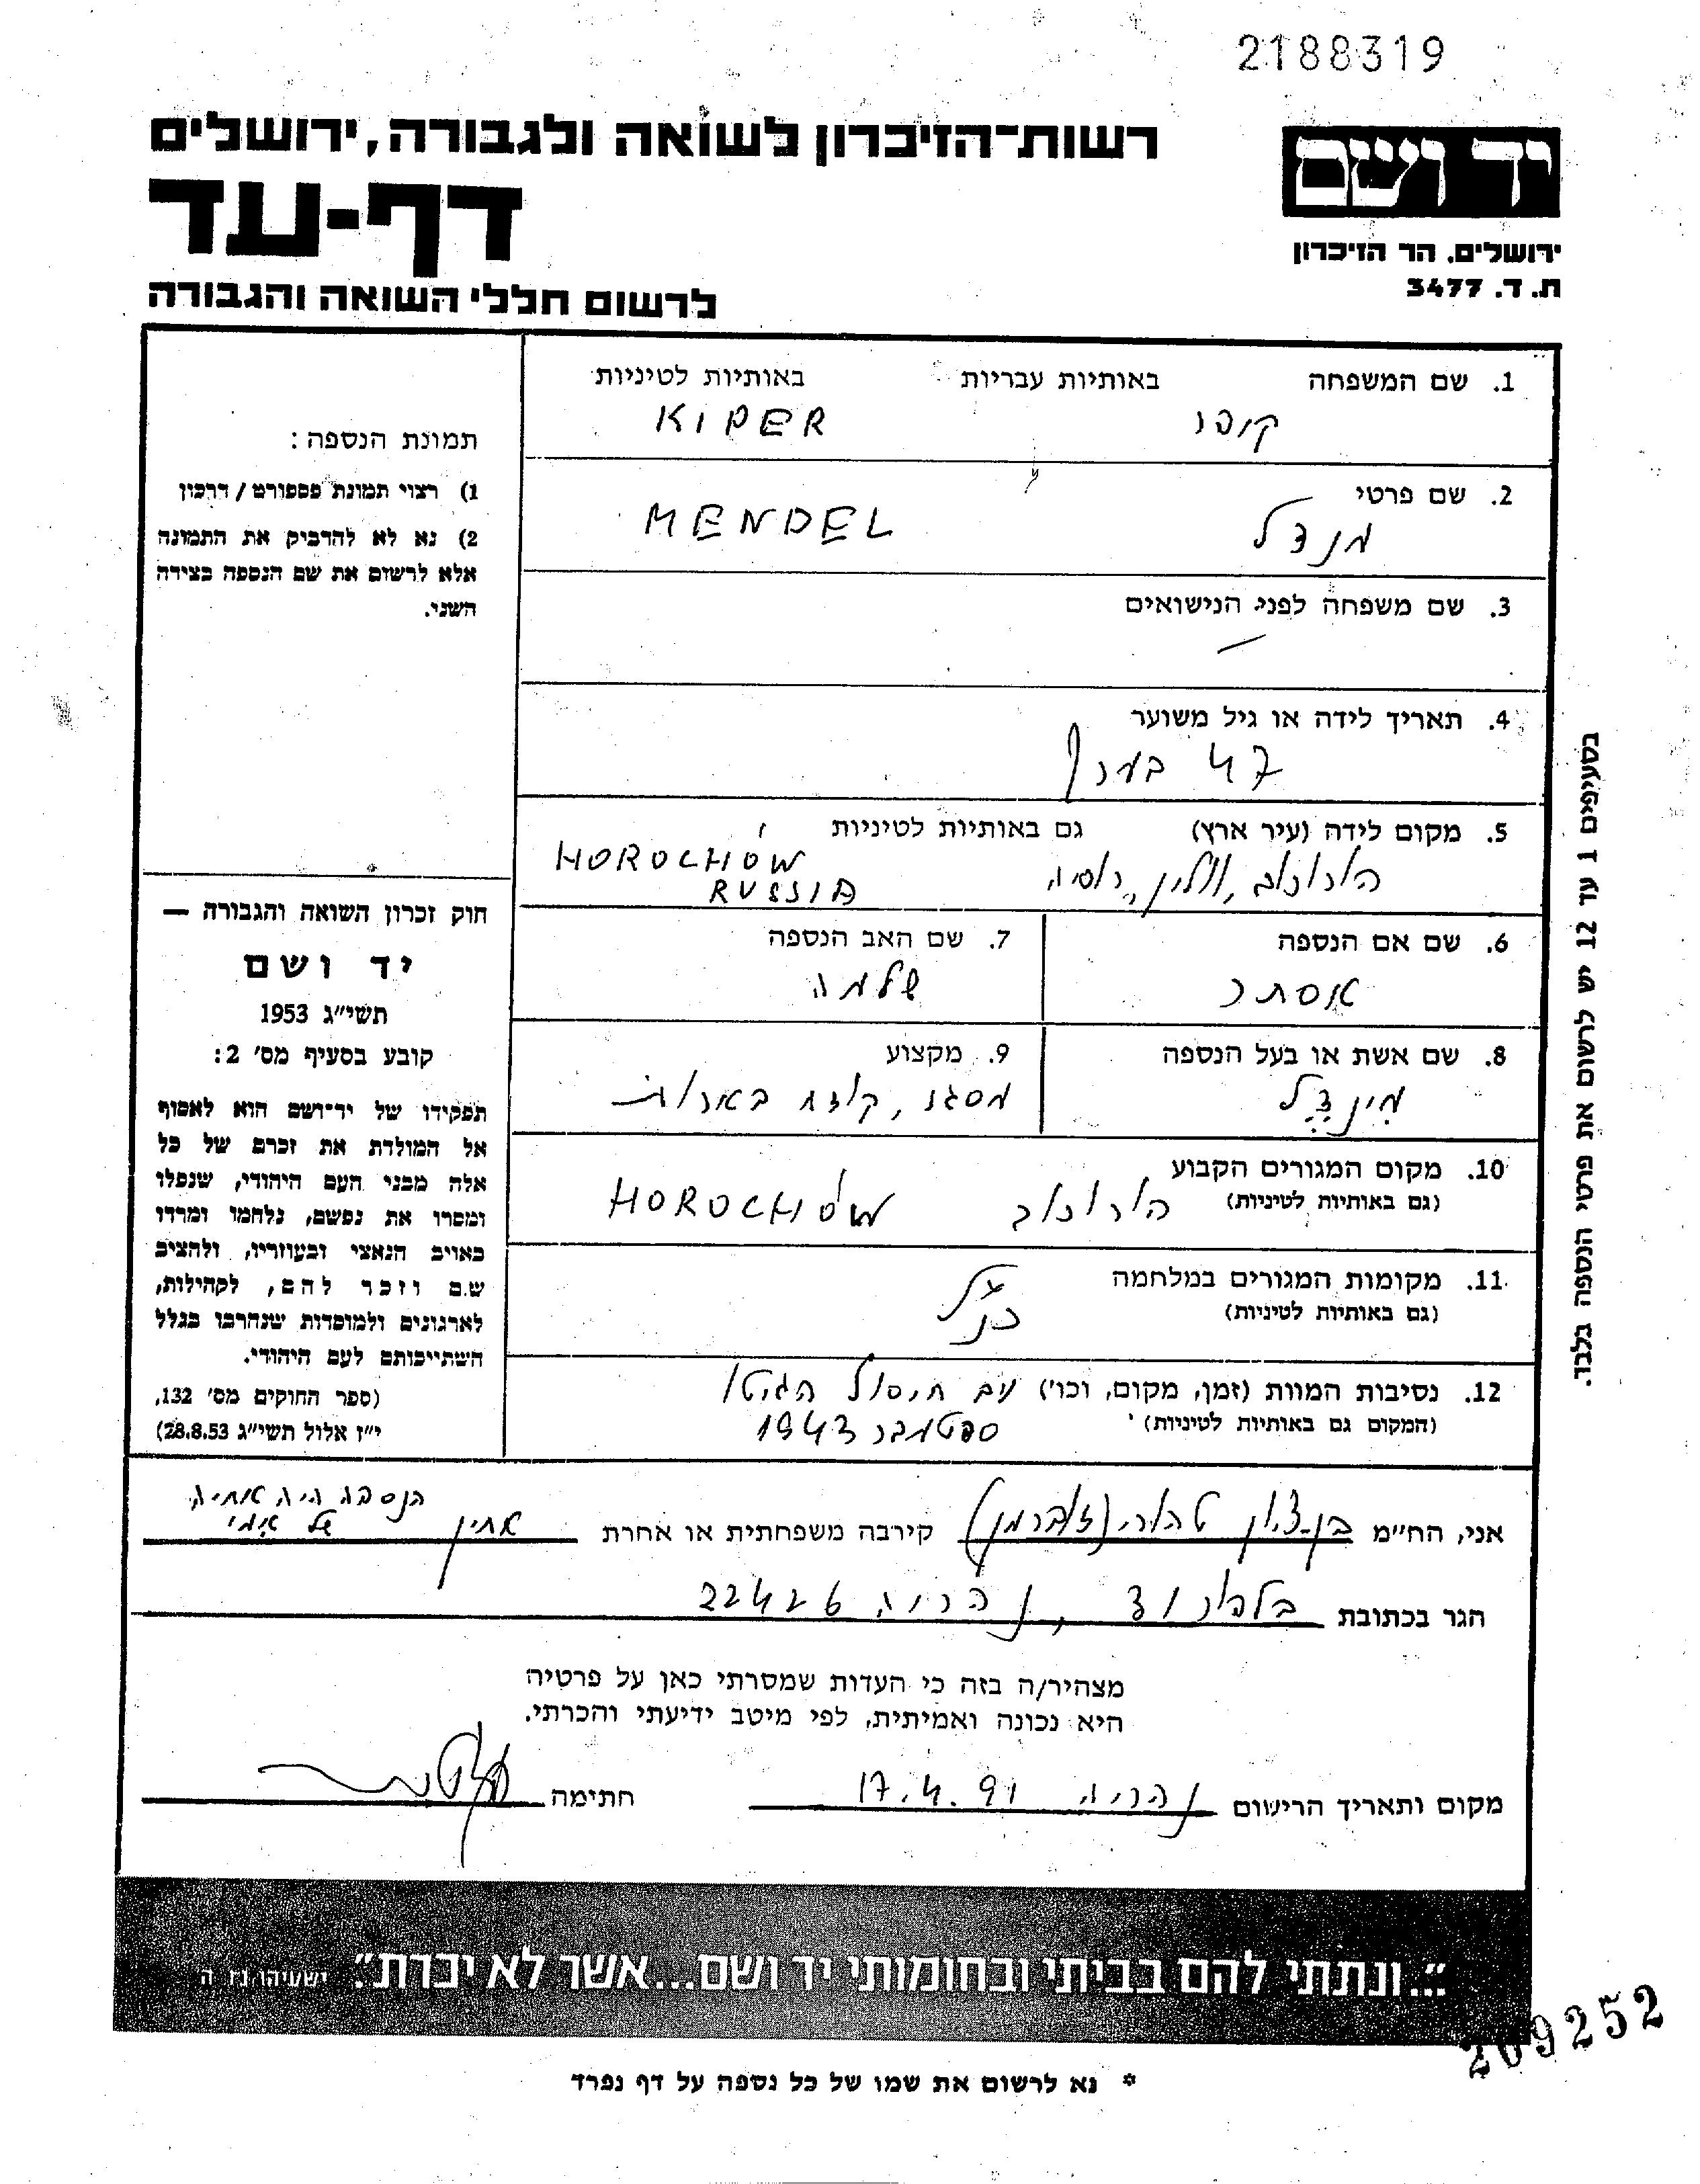 2188319
רשות־הזיכרון לשואה ולגבורה, ירושלים
יד ושם
דף-עד
ירושלים. הר הזיכרון
ת. ד. 3477
לרשום חללי השואה והגבורה
1. שם המשפחה באותיות עבריות באותיות לטיניות
קיפר KIPER
2. שם פרטי
מנדל MENDEL
3. שם משפחה לפני הנישואים
—
4. תאריך לידה או גיל משוער
47 בערך
5. מקום לידה (עיר ארץ) גם באותיות לטיניות
הורוכוב, ווולין, רוסיה HOROCHÓW
RUSSIA
6. שם אם הנספה 7. שם האב הנספה
אסתר שלמה
8. שם אשת או בעל הנספה 9. מקצוע
מינדל מסגר, קודח בארות
10. מקום המגורים הקבוע
(גם באותיות לטיניות) הורוכוב HOROCHÓW
11. מקומות המגורים במלחמה
(גם באותיות לטיניות) כנ"ל
12. נסיבות המוות (זמן, מקום, וכו') עם חיסול הגיטו
(המקום גם באותיות לטיניות) ספטמבר 1943
תמונת הנספה :
1) רצוי תמונת פספורט / דרכון
2) נא לא להדביק את התמונה
אלא לרשום את שם הנספה בצידה
השני.
חוק זכרון השואה והגבורה —
יד ושם
תשי"ג 1953
קובע בסעיף מס' 2:
תפקידו של יד־ושם הוא לאסוף
אל המולדת את זכרם של כל
אלה מבני העם היהודי, שנפלו
ומסרו את נפשם, נלחמו ומרדו
באויב הנאצי ובעוזריו, ולהציב
שם וזכר להם, לקהילות,
לארגונים ולמוסדות שנחרבו בגלל
השתייכותם לעם היהודי.
(ספר החוקים מס' 132,
י"ז אלול תשי"ג 28.8.53)
בסעיפים 1 עד 12 יש לרשום את פרטי הנספה בלבד.
אני, הח"מ בן-ציון טהורי (זוברמן) קירבה משפחתית או אחרת אחיין הנספה היה אחיה
של אימי
הגר בכתובת נהריה 22426
מצהיר/ה בזה כי העדות שמסרתי כאן על פרטיה
היא נכונה ואמיתית, לפי מיטב ידיעתי והכרתי.
מקום ותאריך הרישום נהריה 17.4.91 חתימה
"...ונתתי להם בביתי ובחומותי יד ושם...אשר לא יכרת". ישעיהו נו ה
209252
* נא לרשום את שמו של כל נספה על דף נפרד